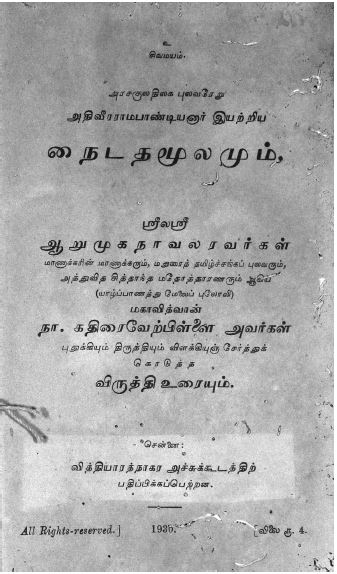 உ
சிவமயம்.
அரசகுலதிலக புலவரேறு
அதிவீரராமபாண்டியனார் இயற்றிய
நைடதமூலமும்,
ஸ்ரீலஸ்ரீ
ஆறுமுகநாவலரவர்கள்
மாணாக்கரின் மாணாக்கரும், மதுரைத் தமிழ்ச்சங்கப் புலவரும்,
அத்துவித சித்தாந்த மதோத்தாரணரும் ஆகிய
(யாழ்ப்பாணத்து மேலைப் புலோலி)
மகாவித்வான்
நா. கதிரைவேற்பிள்ளை அவர்கள்
புதுக்கியும் திருத்தியும் விளக்கியுஞ் சேர்த்துக்
கொடுத்த
விருத்தி உரையும்.
சென்னை:
வித்தியாரத்நாகர அச்சுக்கூடத்திற்
பதிப்பிக்கப்பெற்றன.
All Rights-reserved.] [விலை ரூ. 4.